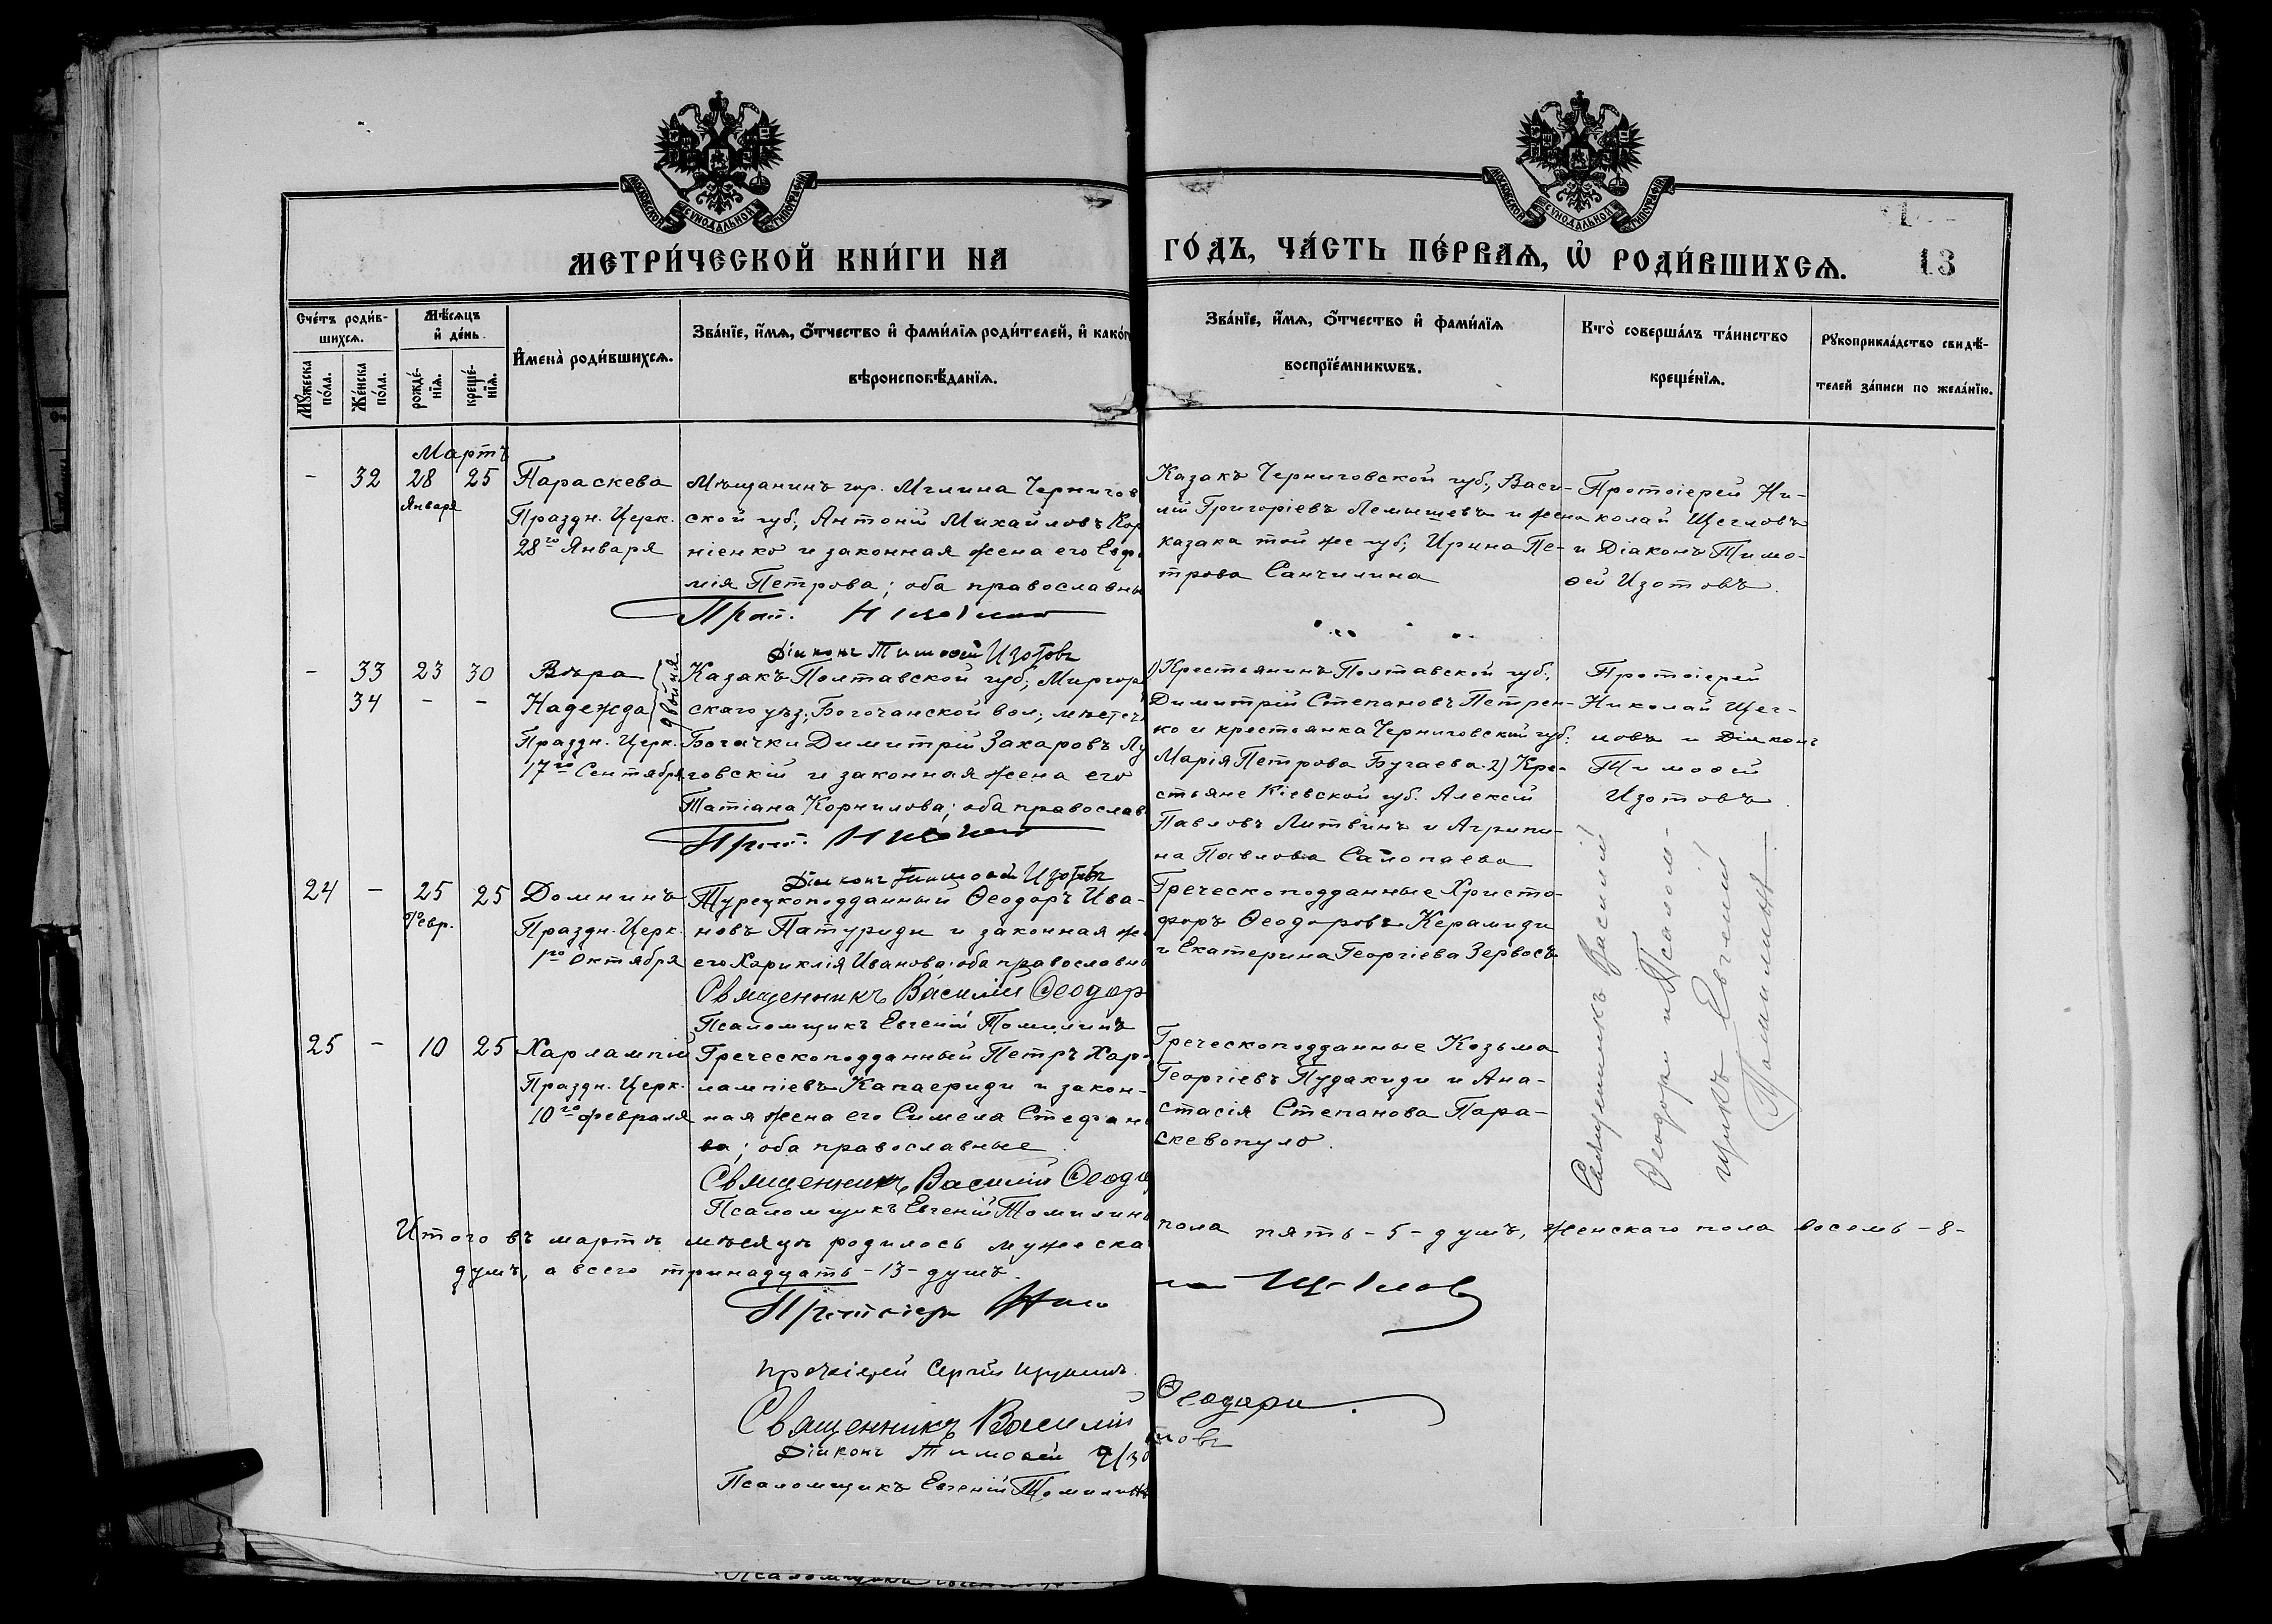 МОСКОВСКОЙ СѴНОДАЛЬНОЙ ТИПОГРАФІИ
МОСКОВСКОЙ СѴНОДАЛЬНОЙ ТИПОГРАФІИ
МЕТРИ́ЧЕСКОЙ КНИ́ГИ НА
ГО́ДЪ, ЧА́СТЬ ПЕ́РВАѦ, Ѡ҆ РОДИ́ВШИХСѦ.
13
Сче́тъ роди́в-
шихсѧ.
Мꙋ́жеска по́ла.
Же́нска по́ла.
Мѣ́сѧцъ
и҆ де́нь.
рожде́-
нїѧ.
креще́-
нїѧ.
И҆мена̀ роди́вшихсѧ.
Зва́нїе, и҆́мѧ, ѻ҆́тчество и҆ фами́лїѧ роди́телей, и҆ како́г
вѣроисповѣ́данїѧ.
Зва́нїе, и҆́мѧ, ѻ҆́тчество и҆ фами́лїѧ
воспрїе́мникѡвъ.
Кто̀ соверша́лъ та́инство
креще́нїѧ.
Рꙋкоприкла́дство свидѣ́-
телей за́писи по жела́нїю.
Мартъ
- 32 28 25 Параскева
Января
Праздн. Церк.
28го Января
Мѣщанинъ гор. Мглина Чернигов
ской губ., Антоній Михайловъ Кор
ніенко и законная жена его Евфи
мія Петрова; оба православны
Прот. Н
Діаконъ Тимоѳей Изотовъ
Казакъ Черниговской губ., Васи-
лій Григоріевъ Лемышевъ и жена
казака той же губ., Ирина Пе-
трова Санчилина
Протоіерей Ни-
колай Щегловъ
и Діаконъ Тимо-
ѳей Изотовъ.
- 33 23 30 Вѣра
34 - - Надежда
двойня
Праздн. Церк.
17го Сентября
Казакъ Полтавской губ., Миргор
скаго уѣз., Богочанской вол., мѣстеч
Богачки Димитрій Захаровъ Лу
говскій и законная жена его
Татіана Корнилова; оба православ
Прот. Н
Діаконъ Тимоѳей Изотовъ
1) Крестьянинъ Полтавской губ.,
Димитрій Степановъ Петрен-
ко и крестьянка Черниговской губ.
Марія Петрова Бугаева. 2) Кре-
стьяне Кіевской губ. Алексій
Павловъ Литвинъ и Агрипи-
на Павлова Салопаева
Протоіерей
Николай Щег-
ловъ и Діаконъ
Тимоѳей
Изотовъ.
24 - 25 25 Домнинъ
Февр.
Праздн. Церк.
1го Октября
Турецкоподданный Ѳеодоръ Ива-
новъ Патуриди и законная же
его Хариклія Иванова; оба православны
Священникъ Василій Ѳеодор
Псаломщикъ Евгеній Томилинъ
Греческоподданные Христо-
форъ Ѳеодоровъ Керамиди
и Екатерина Георгіева Зервосъ
25 - 10 25 Харлампій
Праздн. Церк.
10го февраля
Греческоподданный Петръ Хар-
лампіевъ Капаериди и закон-
ная жена его Симела Стефано
ва; оба православные.
Священникъ Василій Ѳеодо
Псаломщикъ Евгеній Томилинъ
Греческоподданные Козьма
Георгіевъ Пудакиди и Ана-
стасія Степанова Пара-
скевопуло.
Священникъ Василій
Ѳеодори и Псалом-
щикъ Евгеній
Томилинъ
Итого въ мартѣ мѣсяцѣ родилось мужеска пола пять - 5 - душъ, женскаго пола восемь - 8 -
душъ, а всего тринадцать - 13 - душъ.
Протоіерей
Протоіерей Сергій
Священникъ Василій Ѳеодори.
Діаконъ Тимоѳей Изотовъ
Псаломщикъ Евгеній Томилинъ